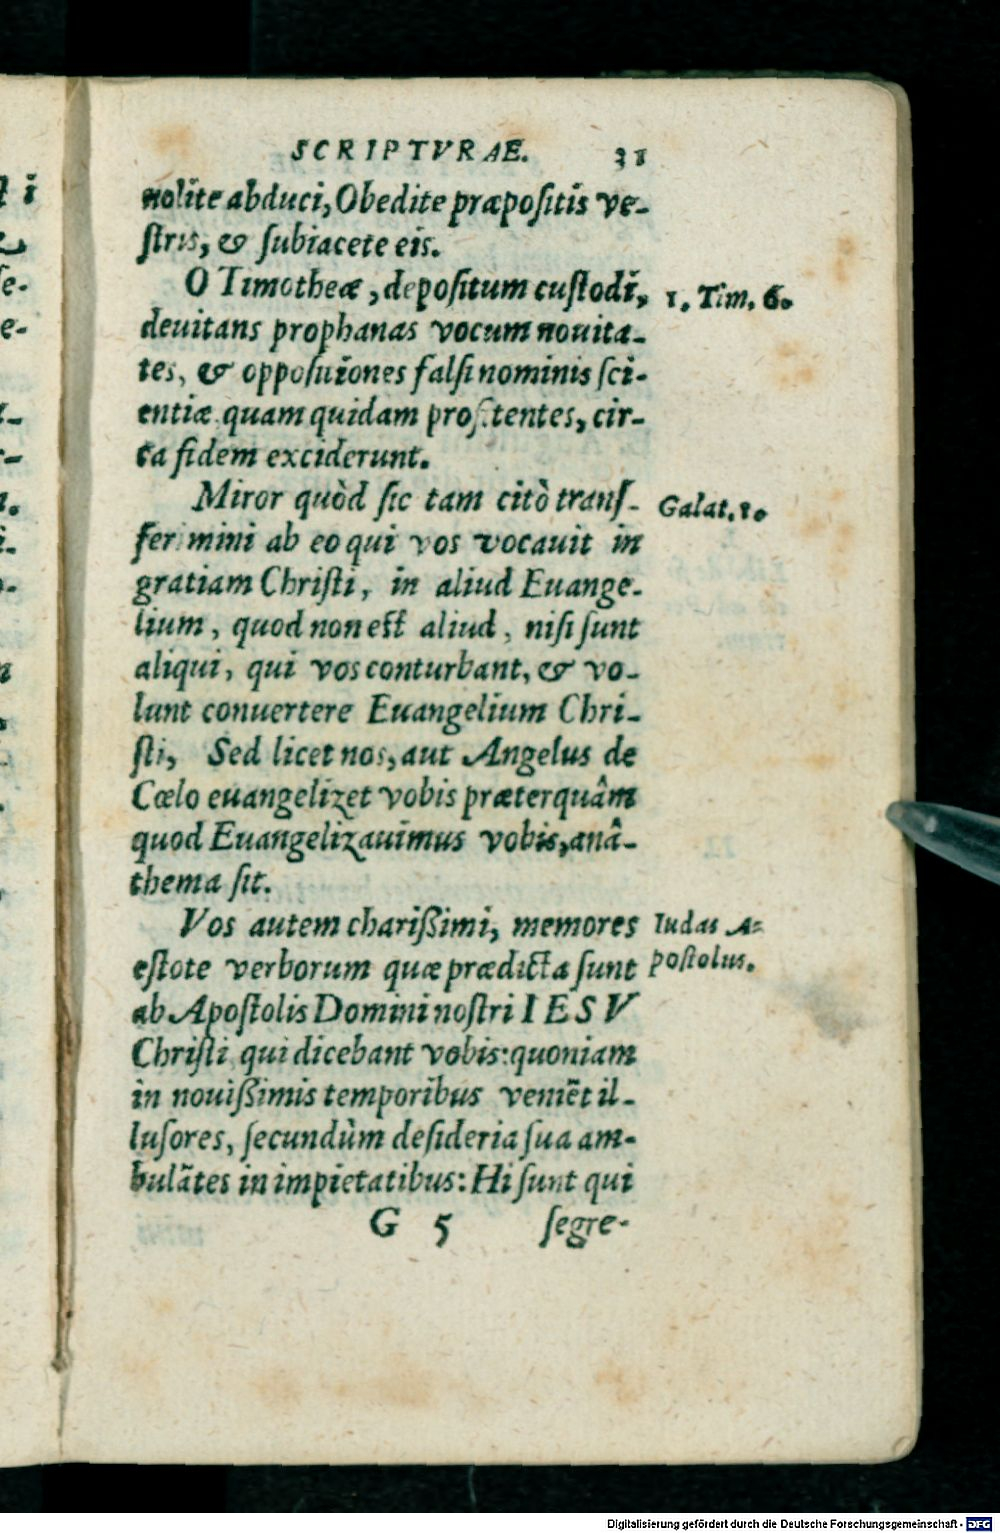 SCRIPTVRAE. 31
nolite abduci, Obedite præpositis ve-
stris, & subiacete eis.
O Timotheæ, depositum custodi, 1. Tim. 6.
deuitans prophanas vocum nouita-
tes, & oppositiones falsi nominis sci-
entiæ quam quidam profitentes, cir-
ca fidem exciderunt.
Miror quòd sic tam citò trans- Galat. 1.
ferimini ab eo qui vos vocauit in
gratiam Christi, in aliud Euange-
lium, quod non est aliud, nisi sunt
aliqui, qui vos conturbant, & vo-
lunt conuertere Euangelium Chri-
sti, Sed licet nos, aut Angelus de
Cœlo euangelizet vobis præterquâm
quod Euangelizauimus vobis, anâ-
thema sit.
Vos autem charißimi, memores Iudas A-
estote verborum quæ prædicta sunt postolus.
ab Apostolis Domini nostri IESV
Christi qui dicebant vobis: quoniam
in nouißimis temporibus veniẽt il-
lusores, secundùm desideria sua am-
bulãtes in impietatibus: Hi sunt qui
G 5 segre-
Digitalisierung gefördert durch die Deutsche Forschungsgemeinschaft - DFG